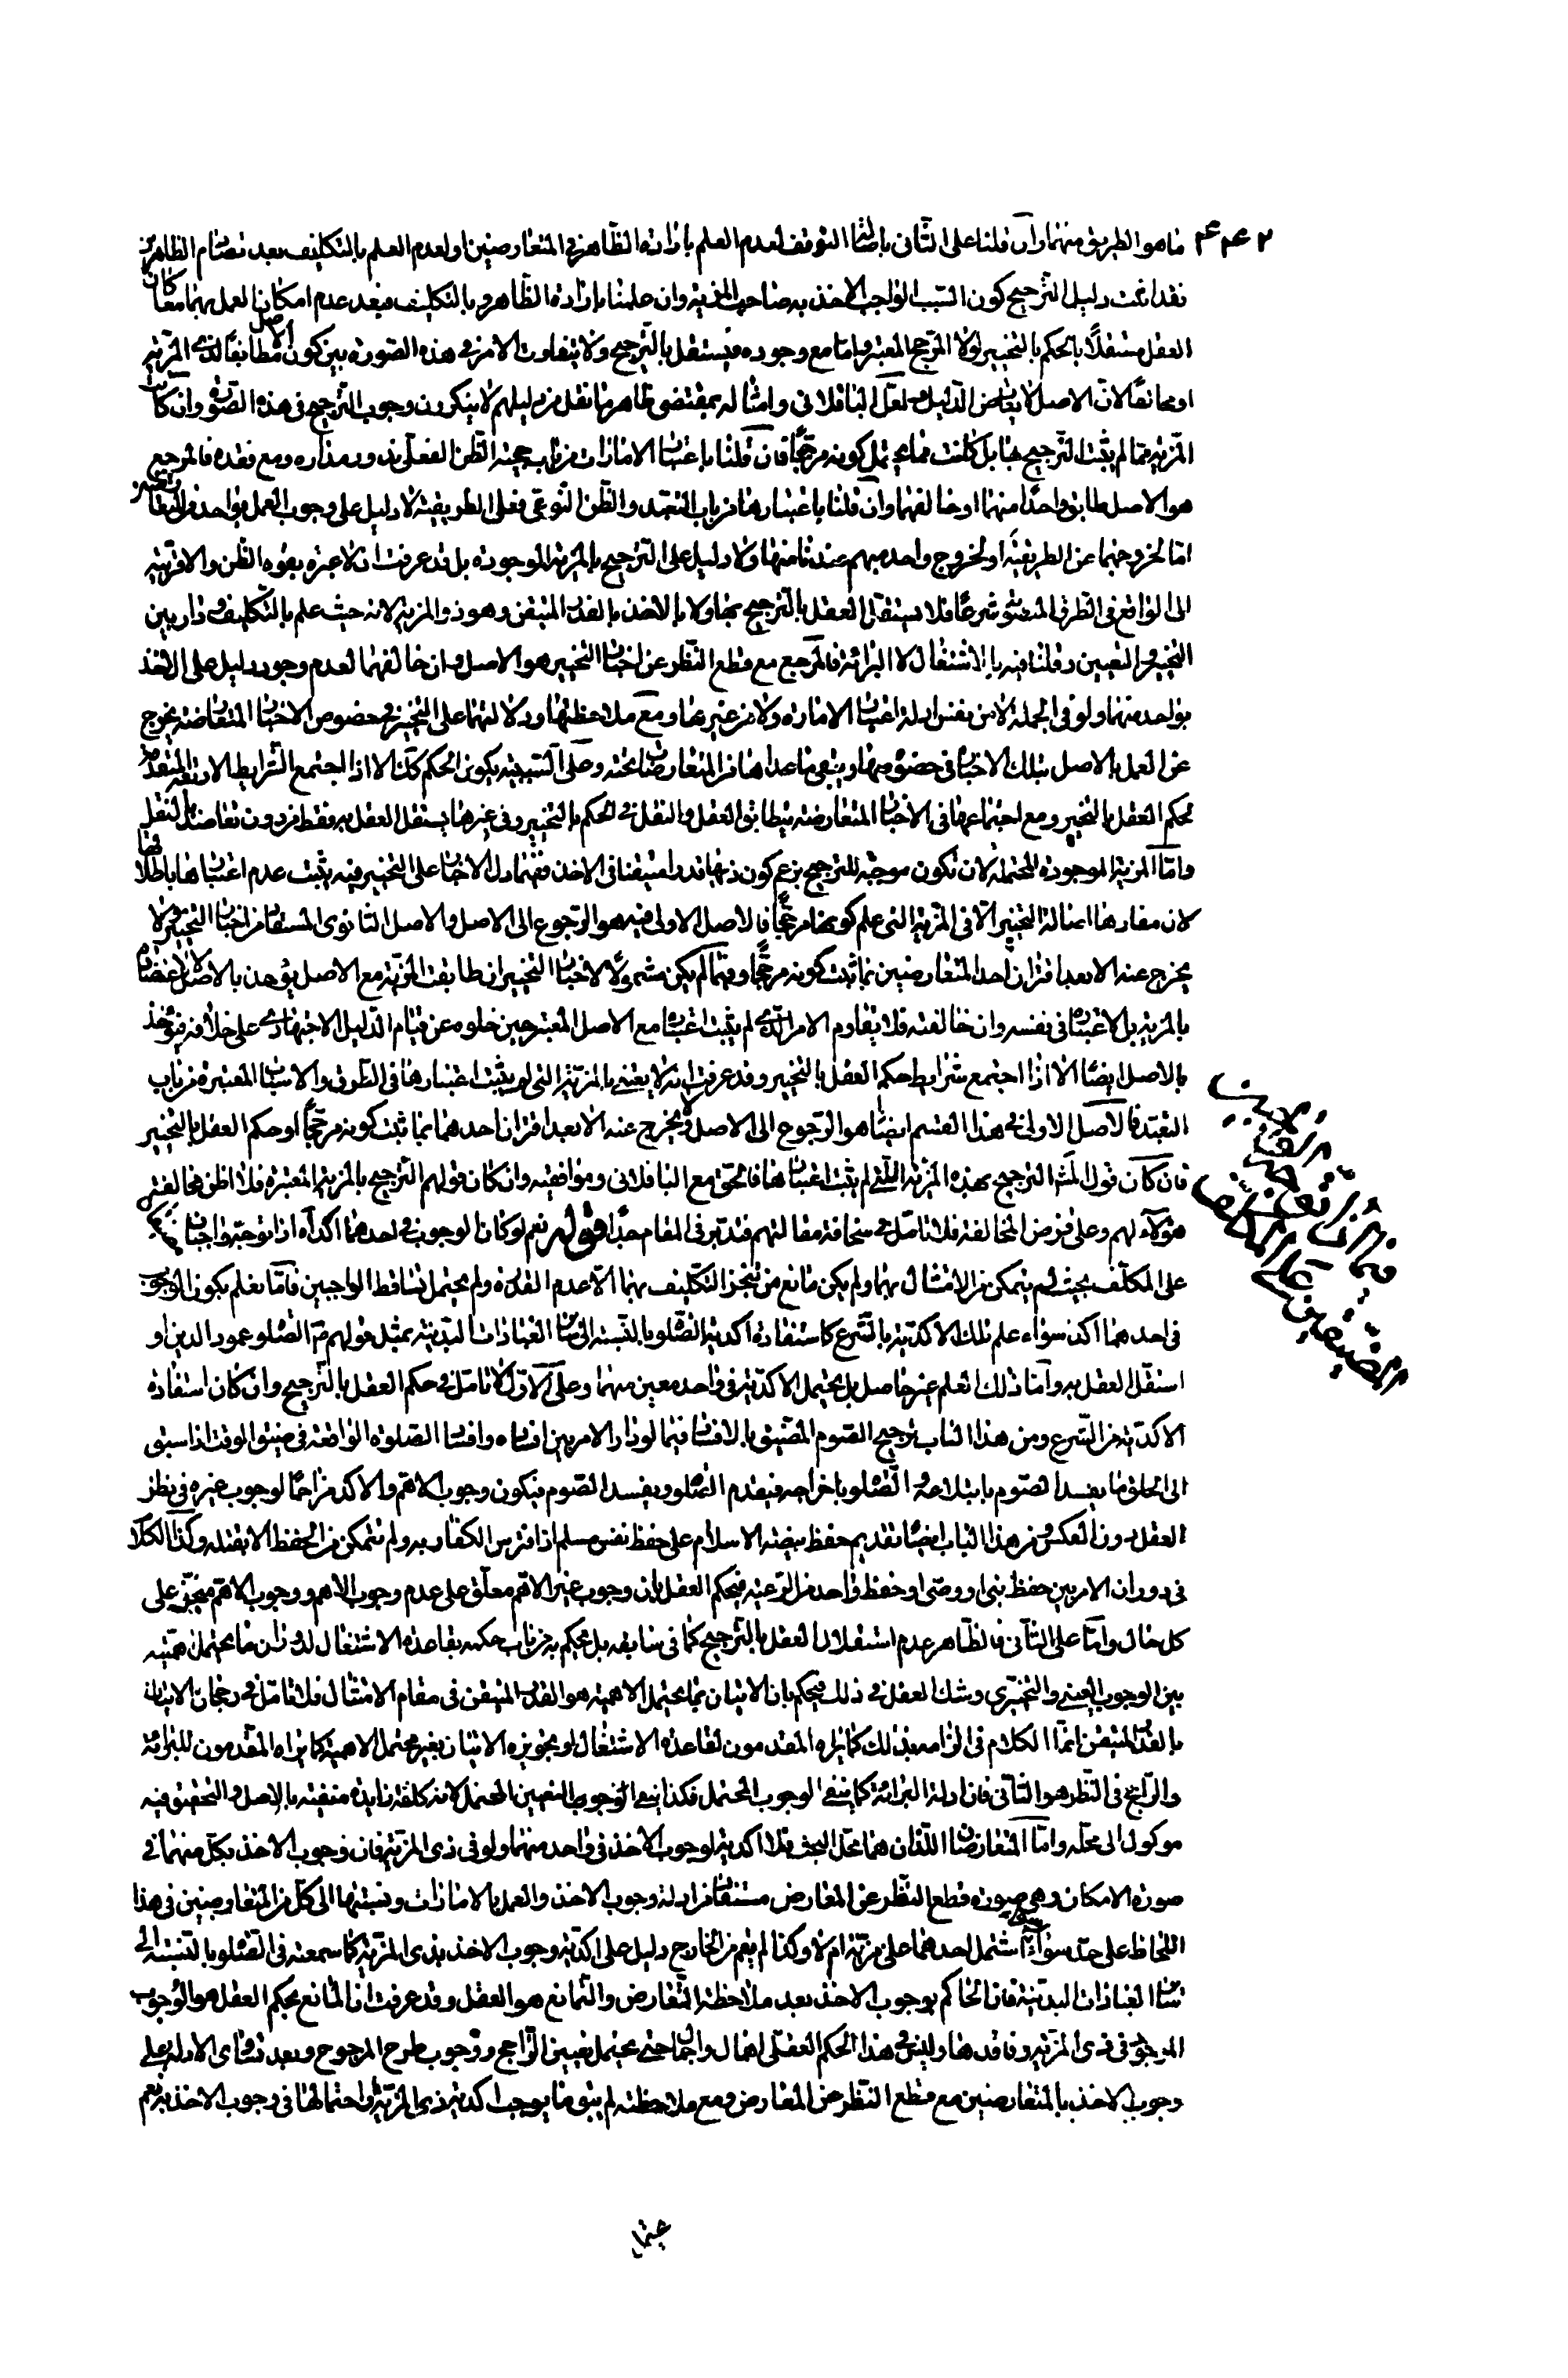 ما هو الطريق منهما وان قلنا على الثاني باصالة التوقف لعدم العلم بارادة الظاهر في المتعارضين او لعدم العلم بالتكليف بعد تصادم الظاهرين
فقد اثبت دليل الترجيح كون السبب الواجب الاخذ به صاحب المزية وان علمنا بارادة الظاهر وبالتكليف فبعد عدم امكان العمل بهما معا كان
العقل مستقلا بالحكم بالتخيير لولا المرجح المعتبر واما مع وجوده فيستقل بالترجيح ولا يتفاوت الامر في هذه الصورة بين كون الاصل مطابقا لذي المزية
او مخالفا لان الاصل لا يعارض الدليل ولعل الباقلاني وامثاله بمقتضى ظاهر ما نقل من دليلهم لا ينكرون وجوب الترجيح في هذه الصورة وان كانت
المزية مما لم يثبت الترجيح بها بل كانت مما يحتمل كونه مرجحا فان قلنا باعتبار الامارات من باب حجية الظن الفعلي فيدور مداره ومع فقده فالمرجع
هو الاصل طابق واحدا منهما او خالفهما وان قلنا باعتبارها من باب التعبد والظن النوعي فعلى الطريقية لا دليل على وجوب العمل بواحد من المتعارضين
اما لخروجهما عن الطريقية او لخروج واحد مبهم عندنا منها ولا دليل على الترجيح بالمزية الموجودة بل قد عرفت ان لا عبرة بقوة الظن والاقربية
الى الواقع في الطرق المنصوبة شرعا فلا يستقل العقل بالترجيح بها ولا بالاخذ بالقدر المتيقن وهو ذو المزية لانه حيث علم بالتكليف ودار بين
التخيير والتعيين وقلنا فيه بالاشتغال لا البرائة فالمرجع مع قطع النظر عن اخبار التخيير هو الاصل وان خالفهما لعدم وجود دليل على الاخذ
بواحد منهما ولو في الجملة لا من نفس ادلة اعتبار الامارة ولا من غيرها ومع ملاحظتها ودلالتها على التخيير في خصوص الاخبار المتعارضة يخرج
عن العمل بالاصل بتلك الاخبار في خصوصها ويبقى ما عداها من المتعارضات تحته وعلى السببية يكون الحكم كذلك الا اذا اجتمع الشرايط الاربعة المتقدمة
لحكم العقل بالتخيير ومع اجتماعها في الاخبار المتعارضة يتطابق العقل والنقل في الحكم بالتخيير وفي غيرها يستقل العقل به فقط من دون تعاضد بالنقل
واما المزية الموجودة المحتملة لان تكون موجبة للترجيح بزعم كون ذيها قدرا متيقنا في الاخذ ففيما دل الاخبار على التخيير فيه يثبت عدم اعتبارها باطلاقها
لان مفادها اصالة التخيير الا في المزية التي علم كونها مرجحا فالاصل الاولي فيه هو الرجوع الى الاصل والاصل الثانوي المستفاد من اخبار التخيير ولا
يخرج عنه الا بعد اقتران احد المتعارضين بما ثبت كونه مرجحا وفيما لم يكن مشمولا لاخبار التخيير ان طابقت المزية مع الاصل يؤخذ بالاصل لا لاعتضاده
بالمزية بل لاعتباره في نفسه وان خالفته فلا يقاوم الامر الذي لم يثبت اعتباره مع الاصل المعتبر حين خلوه عن قيام الدليل الاجتهادي على خلافه فيؤخذ
بالاصل ايضا الا اذا اجتمع شرايط حكم العقل بالتخيير وقد عرفت انه لا يعتنى بالمزية التي لم يثبت اعتبارها في الطرق والاسباب المعتبرة من باب
التعبد فالاصل الاولي في هذا القسم ايضا هو الرجوع الى الاصل ولا يخرج عنه الا بعد اقتران احدهما بما ثبت كونه مرجحا او حكم العقل بالتخيير
فان كان قول المشهور الترجيح بهذه المزية التي لم يثبت اعتبارها فالحق مع الباقلاني وموافقيه وان كان قولهم الترجيح بالمزية المعتبرة فلا اظن مخالفة
هؤلاء لهم وعلى فرض المخالفة فلا تامل في سخافة مقالتهم فتدبر في المقام جدا قوله نعم لو كان الوجوب في احدهما اكد اه اذا توجه واجبان
على المكلف بحيث لم يتمكن من الامتثال بهما ولم يكن مانع من تنجز التكليف بهما الا عدم القدرة ولم يحتمل تساقط الواجبين فاما نعلم بكون الوجوب
في احدهما اكد سواء علم تلك الاكدية بالشرع كاستفادة اكدية الصلوة بالنسبة الى سائر العبادات البدنية بمثل قولهم ع الصلوة عمود الدين او
استقل العقل به واما ذلك العلم غير حاصل بل يحتمل الاكدية في واحد معين منهما وعلى الاول لا تامل في حكم العقل بالترجيح وان كان استفادة
الاكدية من الشرع ومن هذا الباب ترجيح الصوم المضيق بالافساد فيما لو دار الامر بين افساده وافساد الصلوة الواقعة في ضيق الوقت اذا سبق
الى الحلق ما يفسد الصوم بابتلاعه والصلوة باخراجه فيقدم الصلوة ويفسد الصوم فيكون وجوب الاهم والاكد مزاحما لوجوب غيره في نظر
العقل دون العكس ومن هذا الباب ايضا تقديم حفظ بيضة الاسلام على حفظ نفس مسلم اذا تترس الكفار به ولم نتمكن من الحفظ الا بقتله وكذا الكلام
في دوران الامر بين حفظ نبي او وصي او حفظ واحد من الرعية فيحكم العقل بان وجوب غير الاهم معلق على عدم وجوب الاهم ووجوب الاهم منجز على
كل حال واما على الثاني فالظاهر عدم استقلال العقل بالترجيح كما في سابقه بل يحكم به من باب حكمه بقاعدة الاشتغال لدوران ما يحتمل اهميته
بين الوجوب العيني والتخييري وشك العقل في ذلك فيحكم بان الاتيان بما يحتمل الاهمية هو القدر المتيقن في مقام الامتثال فلا تامل في رجحان الاتيان
بالقدر المتيقن انما الكلام في الزامه بذلك كما يراه المقدمون لقاعدة الاشتغال او تجويزه الاتيان بغير محتمل الاهمية كما يراه المقدمون للبرائة
والراجح في النظر هو الثاني فان ادلة البرائة كما ينفى الوجوب المحتمل فكذا ينفى الوجوب التعيين المحتمل لانه كلفة زايدة منفية بالاصل والتحقيق فيه
موكول الى محله واما المتعارضان اللذان هما محل البحث فلا اكدية لوجوب الاخذ في واحد منهما ولو في ذي المزية فان وجوب الاخذ بكل منهما في
صورة الامكان وهي صورة قطع النظر عن المعارض مستفاد من ادلة وجوب الاخذ والعمل بالامارات ونسبتها الى كل من المتعارضين في هذا
اللحاظ على حد سواء اشتمل احدهما على مزية ام لا وكذا لم يقم من الخارج دليل على اكدية وجوب الاخذ بذي المزية كما سمعته في الصلوة بالنسبة الى
سائر العبادات البدنية فان الحاكم بوجوب الاخذ بعد ملاحظة التعارض والتمانع هو العقل وقد عرفت ان المانع بحكم العقل هو الوجوب
الموجود في ذي المزية وفاقدها وليس في هذا الحكم العقلي اهمال واجمال حتى يحتمل تعيين الراجح ووجوب طرح المرجوح وبعد تساوي الادلة على
وجوب الاخذ بالمتعارضين مع قطع النظر عن المعارض ومع ملاحظته لم يبق ما يوجب اكدية ذي المزية واحتمالها في وجوب الاخذ به نعم